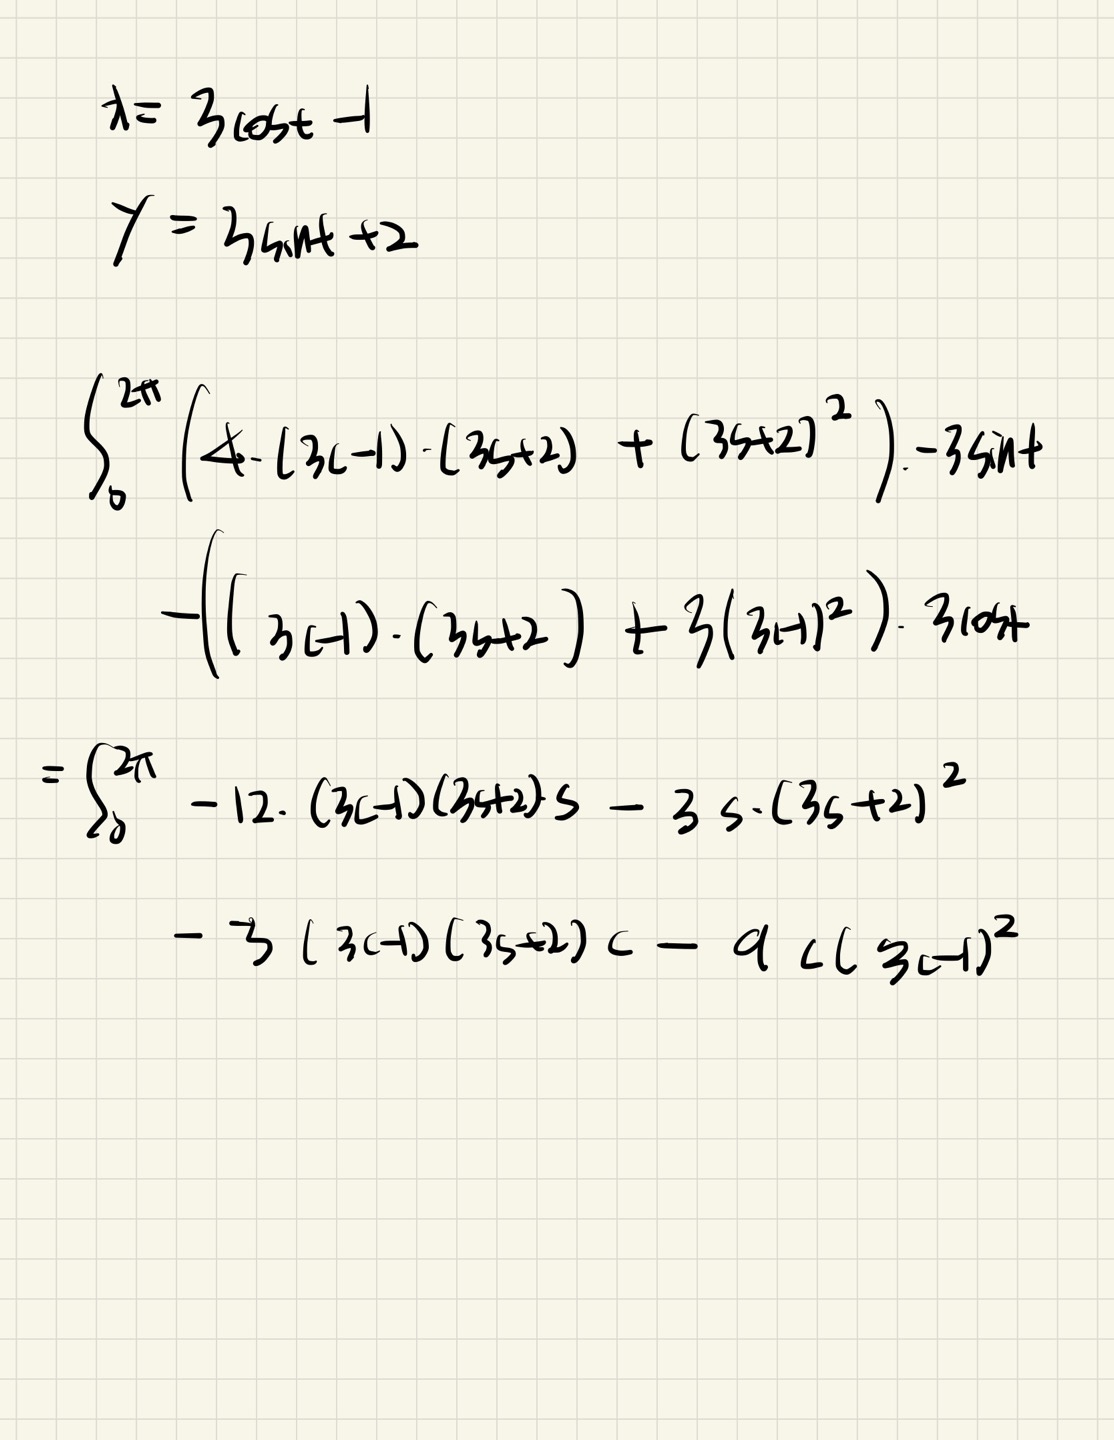 x = 3cost - 1
y = 3sint + 2
∫₀^2π (4·(3c-1)·(3s+2) + (3s+2)²)·-3sint
-((3c-1)·(3s+2) + 3(3c-1)²)·3cost
= ∫₀^2π -12·(3c-1)(3s+2)·s - 3s·(3s+2)²
- 3(3c-1)(3s+2)c - 9c(3c-1)²